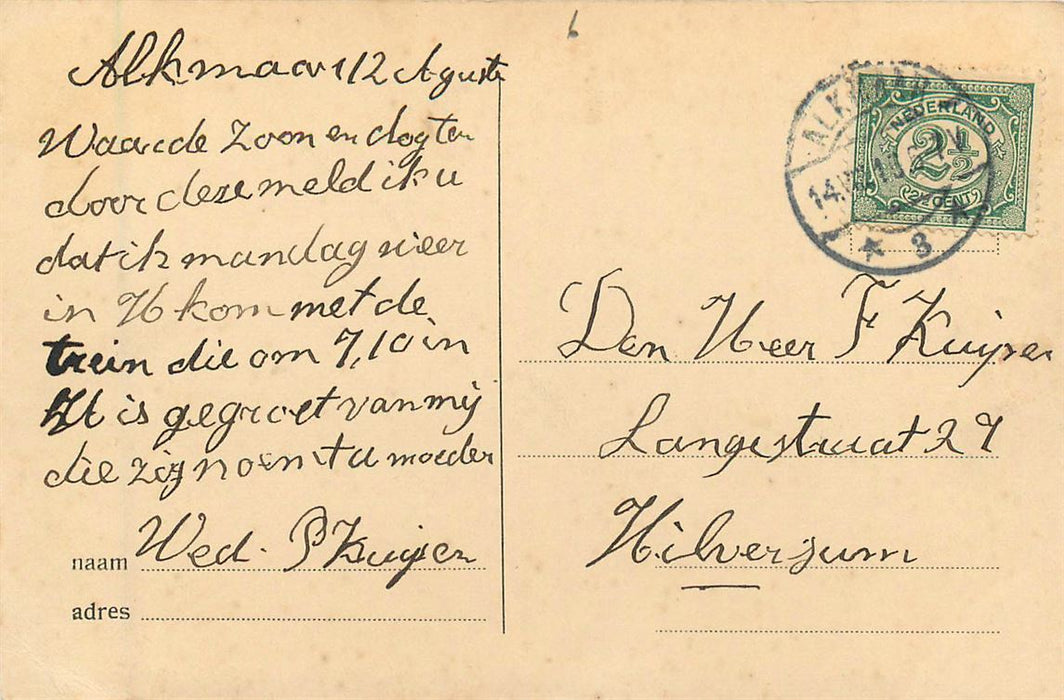 Alkmaar 12 Aguste
Waarde Zoon en dogter
door deze meld ik u
dat ik mandag weer
in H kom met de
trein die om 7,10 in
H is gegroet van mij
die zig noemt u moeder
naam Wed. P Kuyser
adres
ALKMAAR
14
3
NEDERLAND
2½
CENT
Den Heer F Kuyser
Langestraat 27
Hilversum